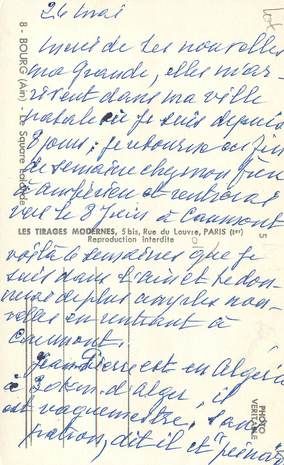 26 mai
merci de tes nouvelles
ma grande, elles m'ar-
rivent dans ma ville
natale où je suis depuis
8 jours; je retourne en fin
de semaine chez mon frère
à Ambérieu et rentrerai
vers le 8 juin à Caumont
voilà 6 semaines que je
suis dans l'Ain et te don-
nerai de plus amples nou-
velles en rentrant à
Caumont.
Jean Pierre est en Algérie
à 20 km. d'Alger, il
est vaguemestre, sans
patron, dit-il et
8 - BOURG (Ain) - Le Square Lalande
LES TIRAGES MODERNES, 5 bis, Rue du Louvre, PARIS (1er)
Reproduction interdite
PHOTO
VERITABLE